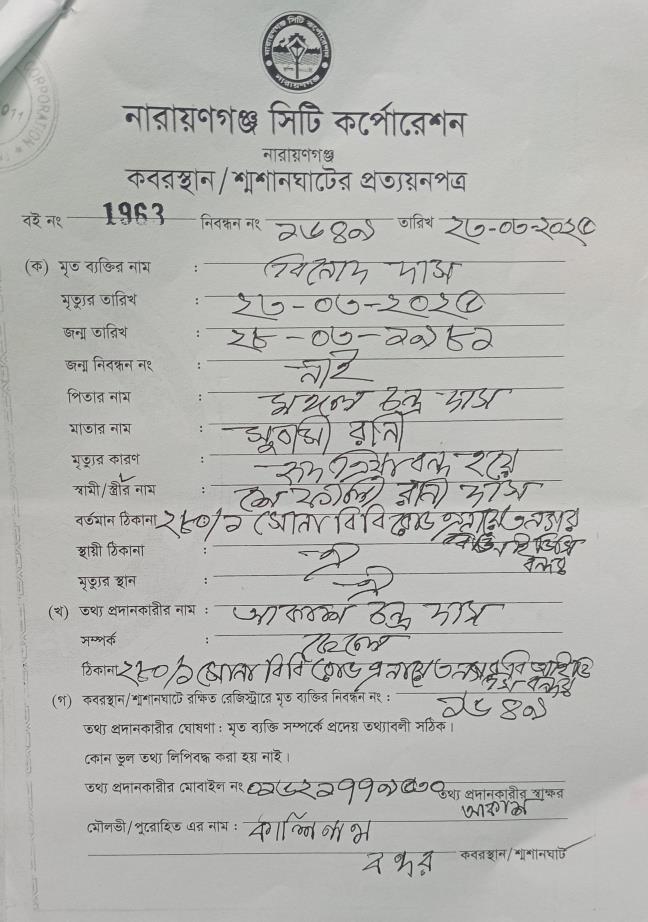 নারায়ণগঞ্জ সিটি কর্পোরেশন
নারায়ণগঞ্জ
নারায়ণগঞ্জ সিটি কর্পোরেশন
নারায়ণগঞ্জ
কবরস্থান/শ্মশানঘাটের প্রত্যয়নপত্র
বই নং 1963 নিবন্ধন নং তারিখ ২৩-০৩-২০২৫
(ক) মৃত ব্যক্তির নাম : বিনোদ দাস
মৃত্যুর তারিখ : ২৩-০৩-২০২৫
জন্ম তারিখ : ২৮-০৩-১৯৮২
জন্ম নিবন্ধন নং : নাই
পিতার নাম : চন্দ্র দাস
মাতার নাম : রানী
মৃত্যুর কারণ : বন্ধ হয়ে
স্বামী/স্ত্রীর নাম : রানী দাস
বর্তমান ঠিকানা ২৮০/১ সোনা বিবি রোড
বন্দর
স্থায়ী ঠিকানা : ঐ
মৃত্যুর স্থান : ঐ
(খ) তথ্য প্রদানকারীর নাম : আকাশ চন্দ্র দাস
সম্পর্ক : ছেলে
ঠিকানা ২৮০/১ সোনা বিবি রোড বন্দর
(গ) কবরস্থান/শ্মশানঘাটে রক্ষিত রেজিস্ট্রারে মৃত ব্যক্তির নিবন্ধন নং :
তথ্য প্রদানকারীর ঘোষণা : মৃত ব্যক্তি সম্পর্কে প্রদেয় তথ্যাবলী সঠিক।
কোন ভুল তথ্য লিপিবদ্ধ করা হয় নাই।
তথ্য প্রদানকারীর মোবাইল নং তথ্য প্রদানকারীর স্বাক্ষর
আকাশ
মৌলভী/পুরোহিত এর নাম :
বন্দর কবরস্থান/শ্মশানঘাট